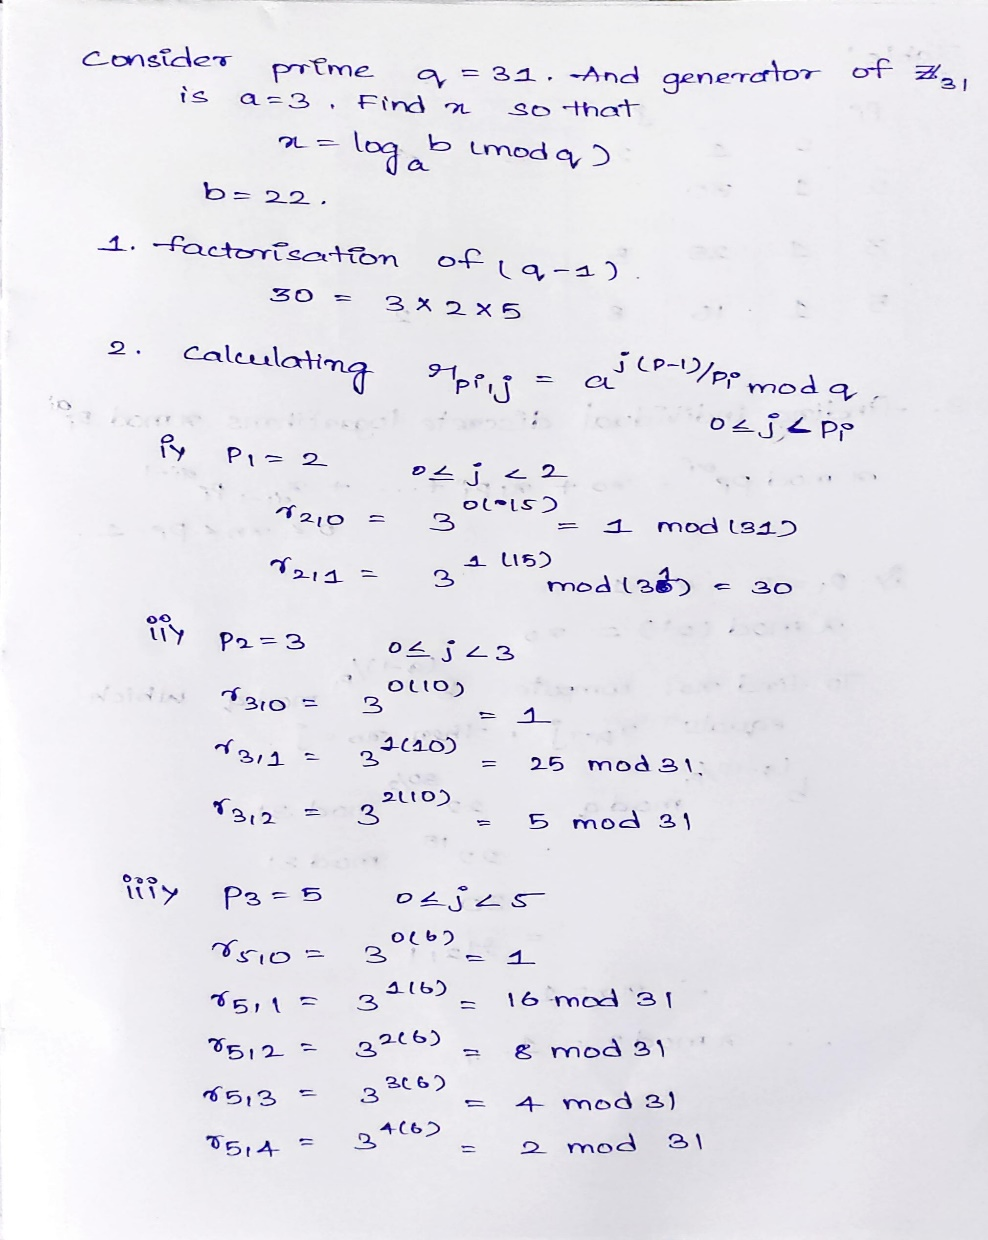 Consider prime q = 31. And generator of ℤ31
is a=3. Find x so that
x = log_a b (mod q)
b = 22.
1. factorisation of (q-1).
30 = 3 × 2 × 5
2. calculating r_{pi,j} = a^{j(p-1)/pi} mod q
0≤j<pi
i) P1 = 2 0≤j<2
r2,0 = 3^{0(15)} = 1 mod (31)
r2,1 = 3^{1(15)} mod (31) = 30
ii) P2 = 3 0≤j<3
r3,0 = 3^{0(10)} = 1
r3,1 = 3^{1(10)} = 25 mod 31.
r3,2 = 3^{2(10)} = 5 mod 31
iii) P3 = 5 0≤j<5
r5,0 = 3^{0(6)} = 1
r5,1 = 3^{1(6)} = 16 mod 31
r5,2 = 3^{2(6)} = 8 mod 31
r5,3 = 3^{3(6)} = 4 mod 31
r5,4 = 3^{4(6)} = 2 mod 31